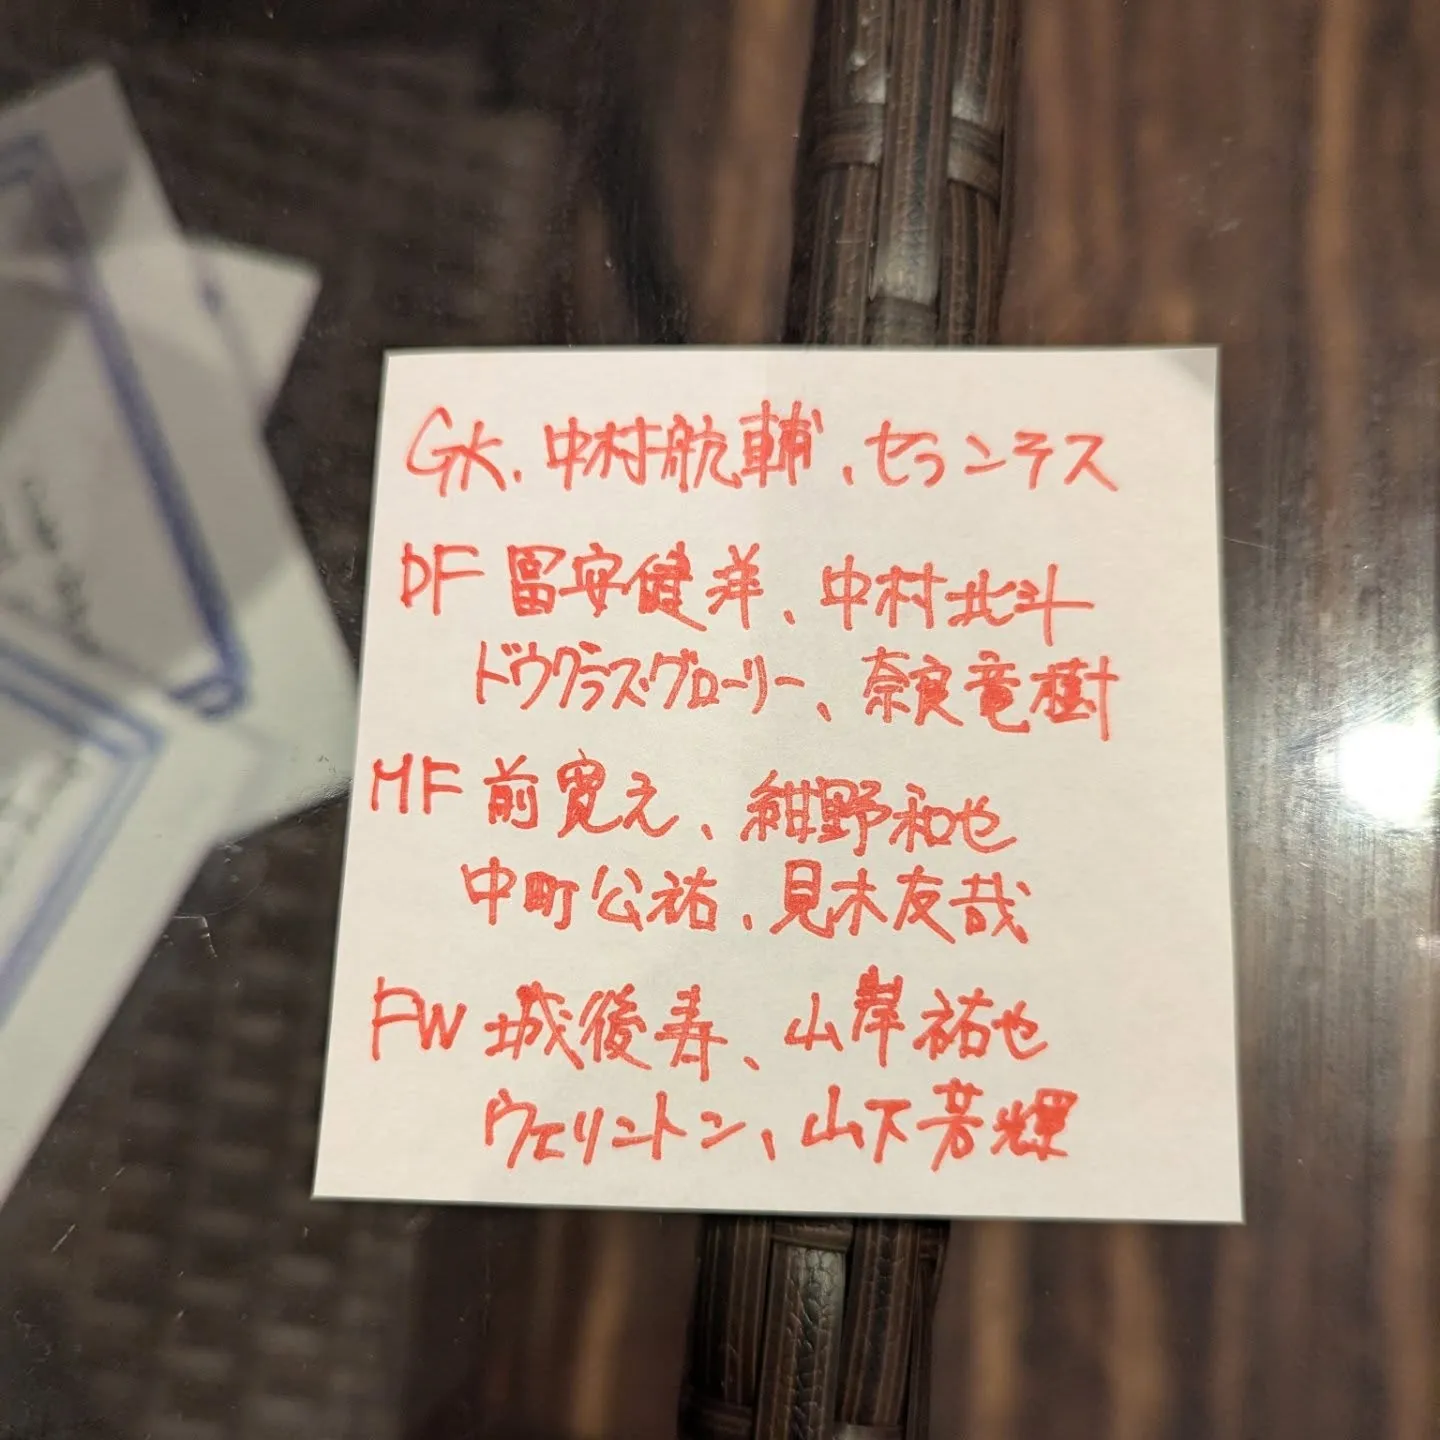 GK、中村航輔、セランテス
DF 冨安健洋、中村北斗
ドウグラス・グローリー、奈良竜樹
MF 前寛之、紺野和也
中町公祐、見木友哉
FW 城後寿、山岸祐也
ウェリントン、山下芳輝